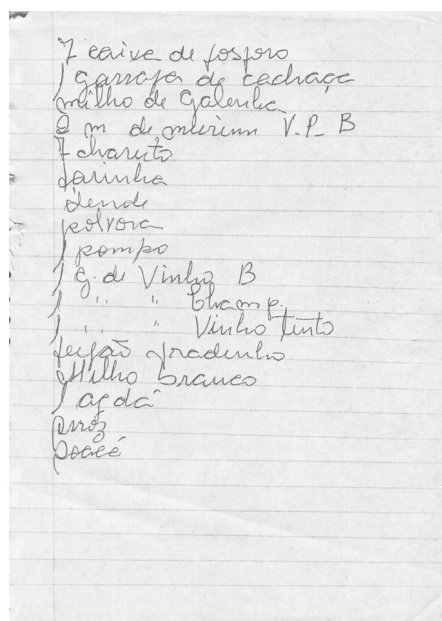 7 caixa de fosforo
1 garrafa de cachaça
milho de Galinha
2 m de murim V.P. B
7 charuto
farinha
dende
polvora
1 pompo
1 g. de Vinho B
1 " " Champ.
1 " " Vinho tinto
feijão fradinho
Milho branco
1 agdá
arroz